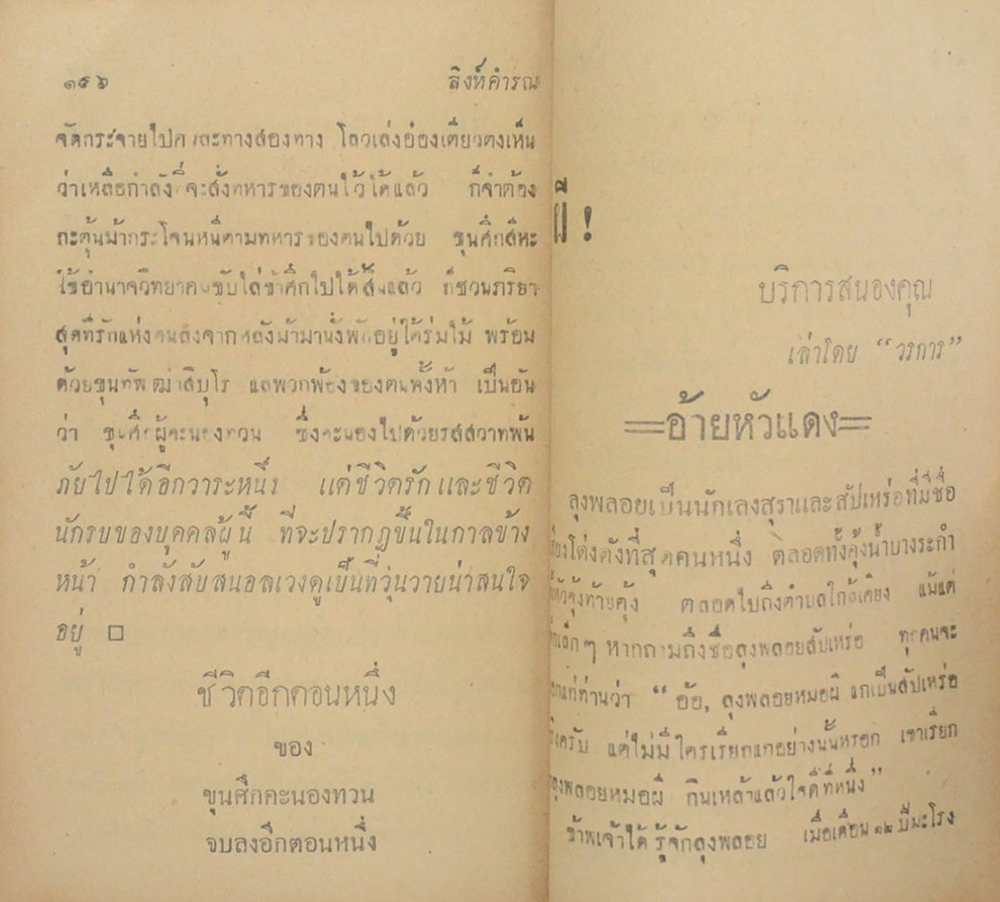 ๑๕๖ สิงห์คำรณ
จัดกระจายไปคนละทางสองทาง โลวเล่งอ๋องเตียวตงเห็น
ว่าเหลือกำลังที่จะสั่งทหารของตนไว้ได้แล้ว ก็จำต้อง
กะตุ้นม้ากระโจนหนีตามทหารของตนไปด้วย ขุนศึกสีหะ
ใช้อำนาจวิทยาคมขับไล่ข้าศึกไปได้สิ้นแล้ว ก็ชวนภริยา
สุดที่รักแห่งตนลงจากหลังม้ามานั่งพักอยู่ใต้ร่มไม้ พร้อม
ด้วยขุนทัพ สิบุโร และพวกพ้องของตนทั้งห้า เป็นอัน
ว่า ขุนศึกผู้คะนองทวน ซึ่งคะนองไปด้วยรสสวาทพ้น
ภัยไปได้อีกวาระหนึ่ง แต่ชีวิตรักและชีวิต
นักรบของบุคคลผู้นี้ ที่จะปรากฏขึ้นในกาลข้าง
หน้า กำลังสับสนอลเวงดูเป็นที่วุ่นวายน่าสนใจ
อยู่ □
ชีวิตอีกตอนหนึ่ง
ของ
ขุนศึกคะนองทวน
จบลงอีกตอนหนึ่ง
ผี !
บริการสนองคุณ
เล่าโดย “วรการ”
==อ้ายหัวแดง==
ลุงพลอยเป็นนักเลงสุราและสัปเหร่อที่มีชื่อ
โด่งดังที่สุดคนหนึ่ง ตลอดทั้งคุ้งน้ำบางระกำ
หัวคุ้งท้ายคุ้ง ตลอดไปถึงตำบลใกล้เคียง แม้แต่
เด็กๆ หากถามถึงชื่อลุงพลอยสัปเหร่อ ทุกคนจะ
แก่ท่านว่า “อ้อ, ลุงพลอยหมอผี แกเป็นสัปเหร่อ
ครับ แต่ไม่มีใครเรียกแกอย่างนั้นหรอก เขาเรียก
ลุงพลอยหมอผี กินเหล้าแล้วใจดีที่หนึ่ง”
ข้าพเจ้าได้รู้จักลุงพลอย เมื่อเดือน ๑๒ ปีมะโรง